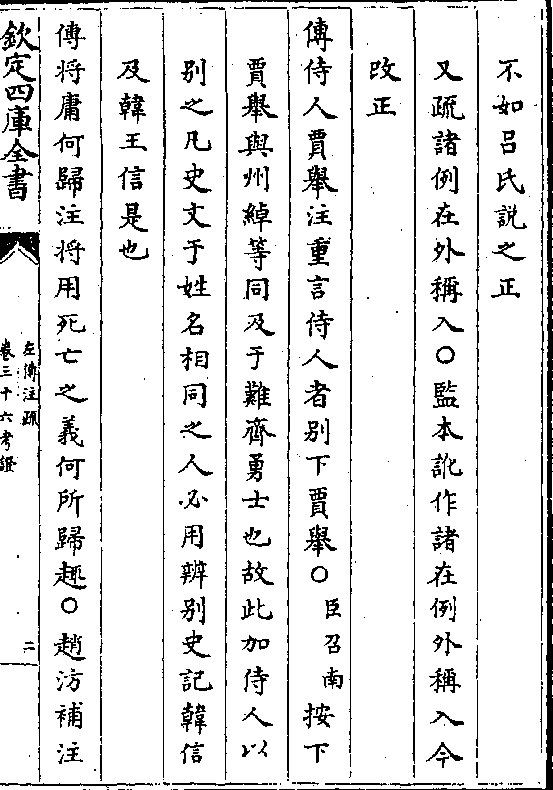 不如呂氏說之正
又疏諸例在外稱入○監本訛作諸在例外稱入今
改正
傳侍人賈舉注重言侍人者別下賈舉○臣召南按下
賈舉與州綽等同及于難齊勇士也故此加侍人以
別之凡史文于姓名相同之人必用辨別史記韓信
及韓王信是也
傳將庸何歸注將用死亡之義何所歸趣○趙汸補注
欽定四庫全書
左傳注疏
卷三十六考證
二